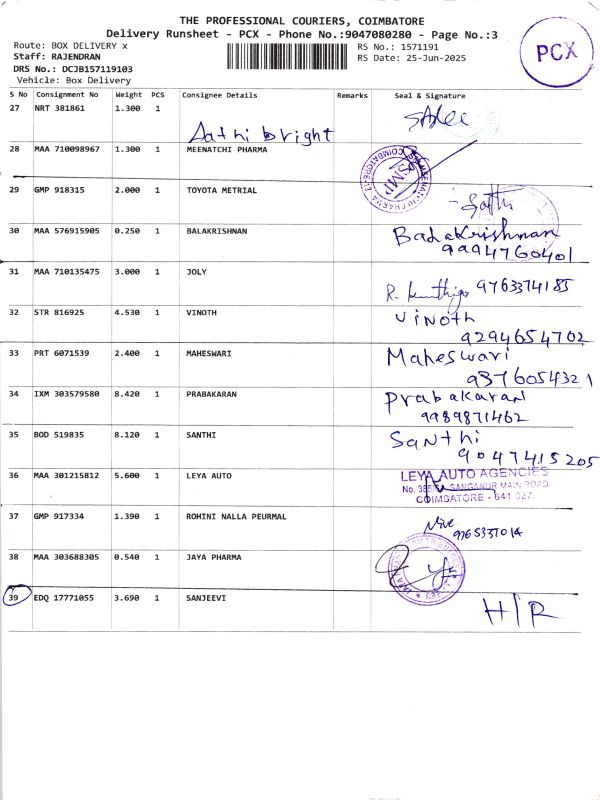 THE PROFESSIONAL COURIERS, COIMBATORE
Delivery Runsheet - PCX - Phone No.:9047080280 - Page No.:3
Route: BOX DELIVERY x
Staff: RAJENDRAN
DRS No.: DCJB157119103
Vehicle: Box Delivery
RS No.: 1571191
RS Date: 25-Jun-2025
PCX
S No Consignment No Weight PCS Consignee Details Remarks Seal & Signature
27 NRT 381861 1.300 1
Aathi bright
28 MAA 710098967 1.300 1 MEENATCHI PHARMA
29 GMP 918315 2.000 1 TOYOTA METRIAL
30 MAA 576915905 0.250 1 BALAKRISHNAN BalaKrishnan
9994760401
31 MAA 710135475 3.000 1 JOLY
9763374185
32 STR 816925 4.530 1 VINOTH Vinoth
9294654702
33 PRT 6071539 2.400 1 MAHESWARI Maheswari
9376054321
34 IXM 303579580 8.420 1 PRABAKARAN Prabakaran
9989871462
35 BOD 519835 8.120 1 SANTHI Santhi
9047415205
36 MAA 301215812 5.600 1 LEYA AUTO LEYA AUTO AGENCIES
SANGANUR MAIN ROAD
COIMBATORE - 641 027.
37 GMP 917334 1.390 1 ROHINI NALLA PEURMAL
38 MAA 303688305 0.540 1 JAYA PHARMA
39 EDQ 17771055 3.690 1 SANJEEVI H/R